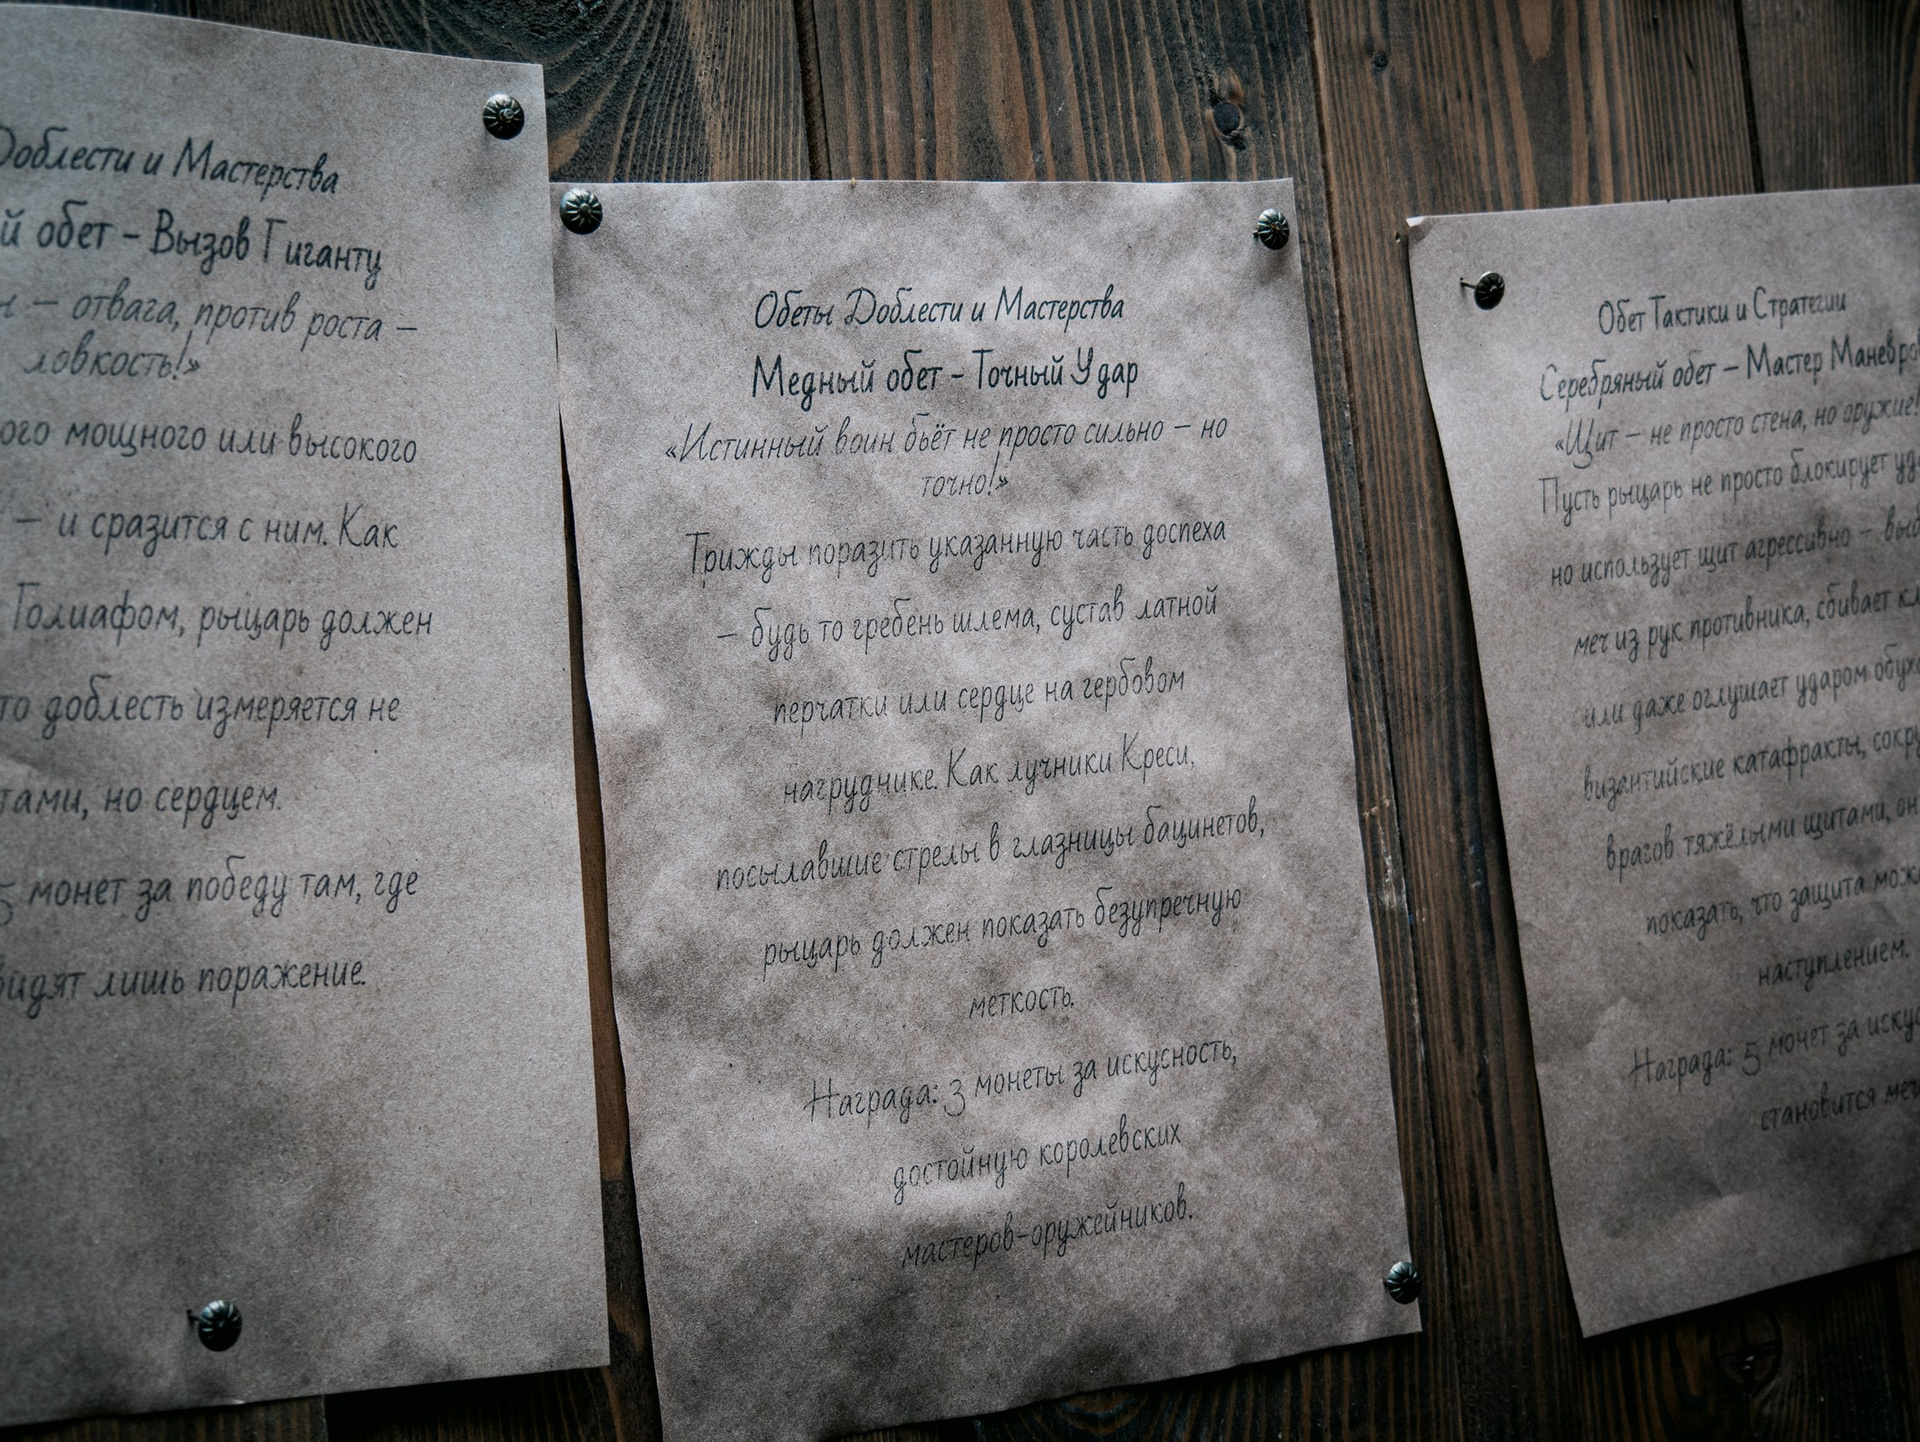 Доблести и Мастерства
й обет – Вызов Гиганту
– отвага, против роста –
ловкость!»
ого мощного или высокого
– и сразится с ним. Как
Голиафом, рыцарь должен
то доблесть измеряется не
тами, но сердцем.
5 монет за победу там, где
видят лишь поражение.
Обеты Доблести и Мастерства
Медный обет – Точный Удар
«Истинный воин бьёт не просто сильно – но
точно!»
Трижды поразить указанную часть доспеха
– будь то гребень шлема, сустав латной
перчатки или сердце на гербовом
нагруднике. Как лучники Креси,
посылавшие стрелы в глазницы бацинетов,
рыцарь должен показать безупречную
меткость.
Награда: 3 монеты за искусность,
достойную королевских
мастеров-оружейников.
Обет Тактики и Стратегии
Серебряный обет – Мастер Маневро
«Щит – не просто стена, но оружие!
Пусть рыцарь не просто блокирует уд
но использует щит агрессивно – выб
меч из рук противника, сбивает кл
или даже оглушает ударом обухо
византийские катафракты, сокру
врагов тяжёлыми щитами, он
показать, что защита мож
наступлением.
Награда: 5 монет за искус
становится меч